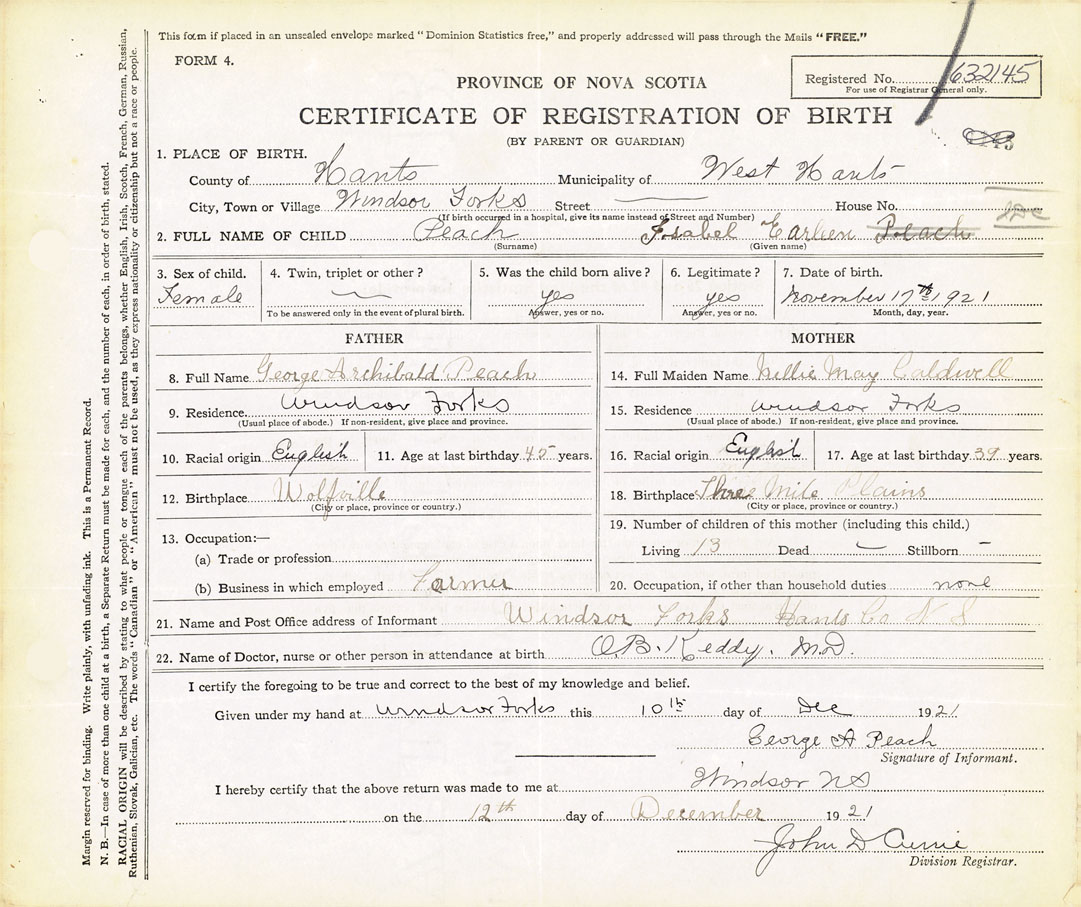 This form if placed in an unsealed envelope marked "Dominion Statistics free," and properly addressed will pass through the Mails "FREE."
FORM 4.
PROVINCE OF NOVA SCOTIA
Registered No. 632145
For use of Registrar General only.
CERTIFICATE OF REGISTRATION OF BIRTH
(BY PARENT OR GUARDIAN)
1. PLACE OF BIRTH.
County of Hants Municipality of West Hants
City, Town or Village Windsor Forks Street House No.
(If birth occurred in a hospital, give its name instead of Street and Number)
2. FULL NAME OF CHILD Peach Isabel Earleen Peach
(Surname) (Given name)
3. Sex of child. 4. Twin, triplet or other? 5. Was the child born alive? 6. Legitimate? 7. Date of birth.
Female yes yes November 17th 1921
To be answered only in the event of plural birth. Answer, yes or no. Answer, yes or no. Month, day, year.
FATHER MOTHER
8. Full Name George Archibald Peach 14. Full Maiden Name Nellie May Caldwell
9. Residence Windsor Forks 15. Residence Windsor Forks
(Usual place of abode.) If non-resident, give place and province. (Usual place of abode.) If non-resident, give place and province.
10. Racial origin English 11. Age at last birthday 45 years. 16. Racial origin English 17. Age at last birthday 39 years.
12. Birthplace Wolfville 18. Birthplace Three Mile Plains
(City or place, province or country.) (City or place, province or country.)
13. Occupation:— 19. Number of children of this mother (including this child.)
(a) Trade or profession Living 13 Dead — Stillborn –
(b) Business in which employed Farmer 20. Occupation, if other than household duties none
21. Name and Post Office address of Informant Windsor Forks Hants Co N S
22. Name of Doctor, nurse or other person in attendance at birth O.B. Keddy. M.D.
I certify the foregoing to be true and correct to the best of my knowledge and belief.
Given under my hand at Windsor Forks this 10th day of Dec 1921
George A Peach
Signature of Informant.
I hereby certify that the above return was made to me at Windsor NS
on the 12th day of December 1921
John D Currie
Division Registrar.
Margin reserved for binding. Write plainly, with unfading ink. This is a Permanent Record.
N. B.—In case of more than one child at a birth, a Separate Return must be made for each, and the number of each, in order of birth, stated.
RACIAL ORIGIN will be described by stating to what people or tongue each of the parents belongs, whether English, Irish, Scotch, French, German, Russian,
Ruthenian, Slovak, Galician, etc. The words "Canadian" or "American" must not be used, as they express nationality or citizenship but not a race or people.